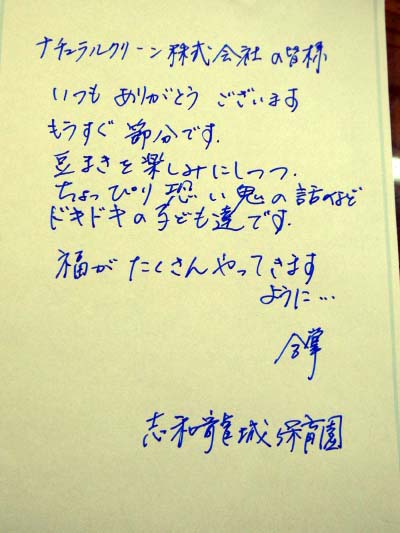 ナチュラルクリーン株式会社の皆様
いつも ありがとう ございます
もうすぐ 節分です.
豆まきを楽しみにしつつ.
ちょっぴり 恐い鬼の話など
ドキドキの子ども達です.
福が たくさん やってきます
ように…
合掌
志和龍城保育園